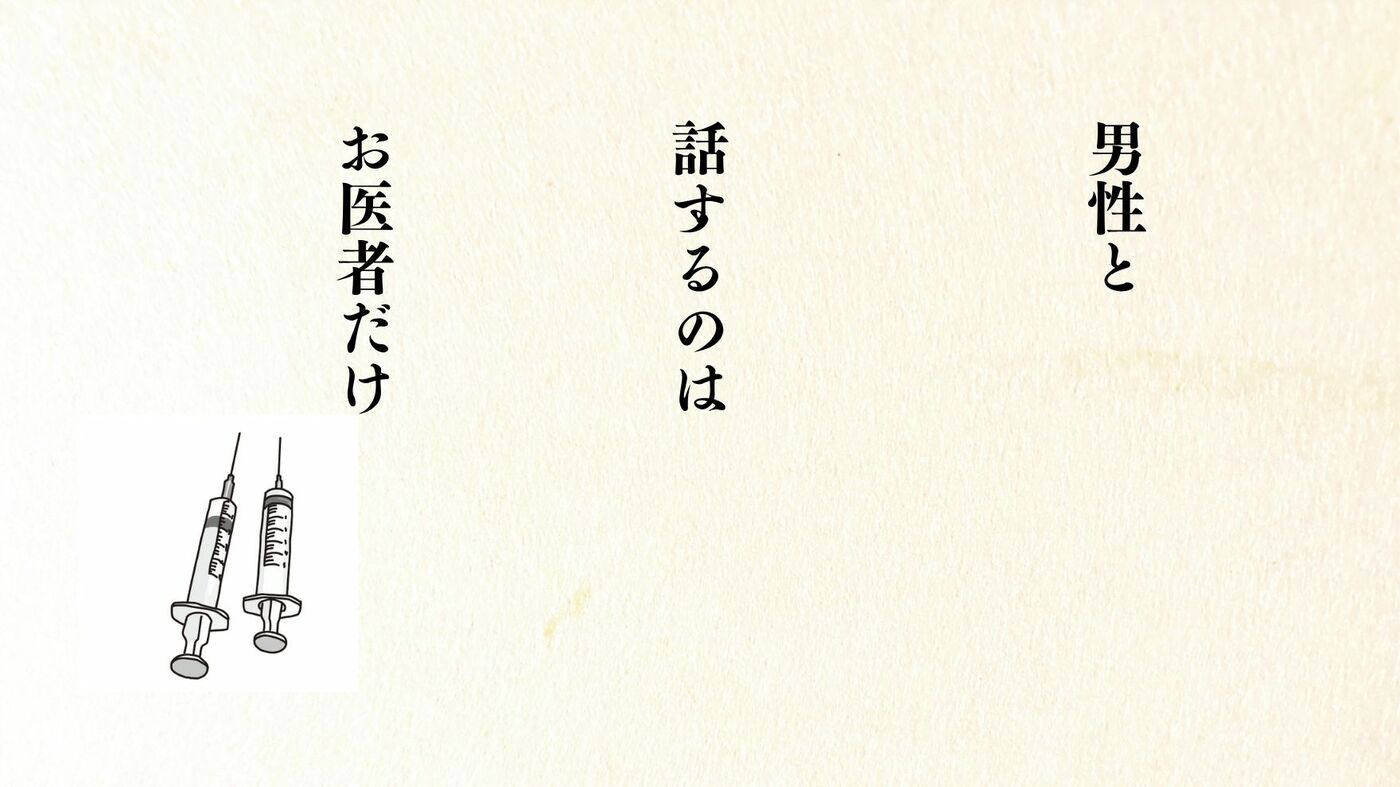 男性と
話するのは
お医者だけ